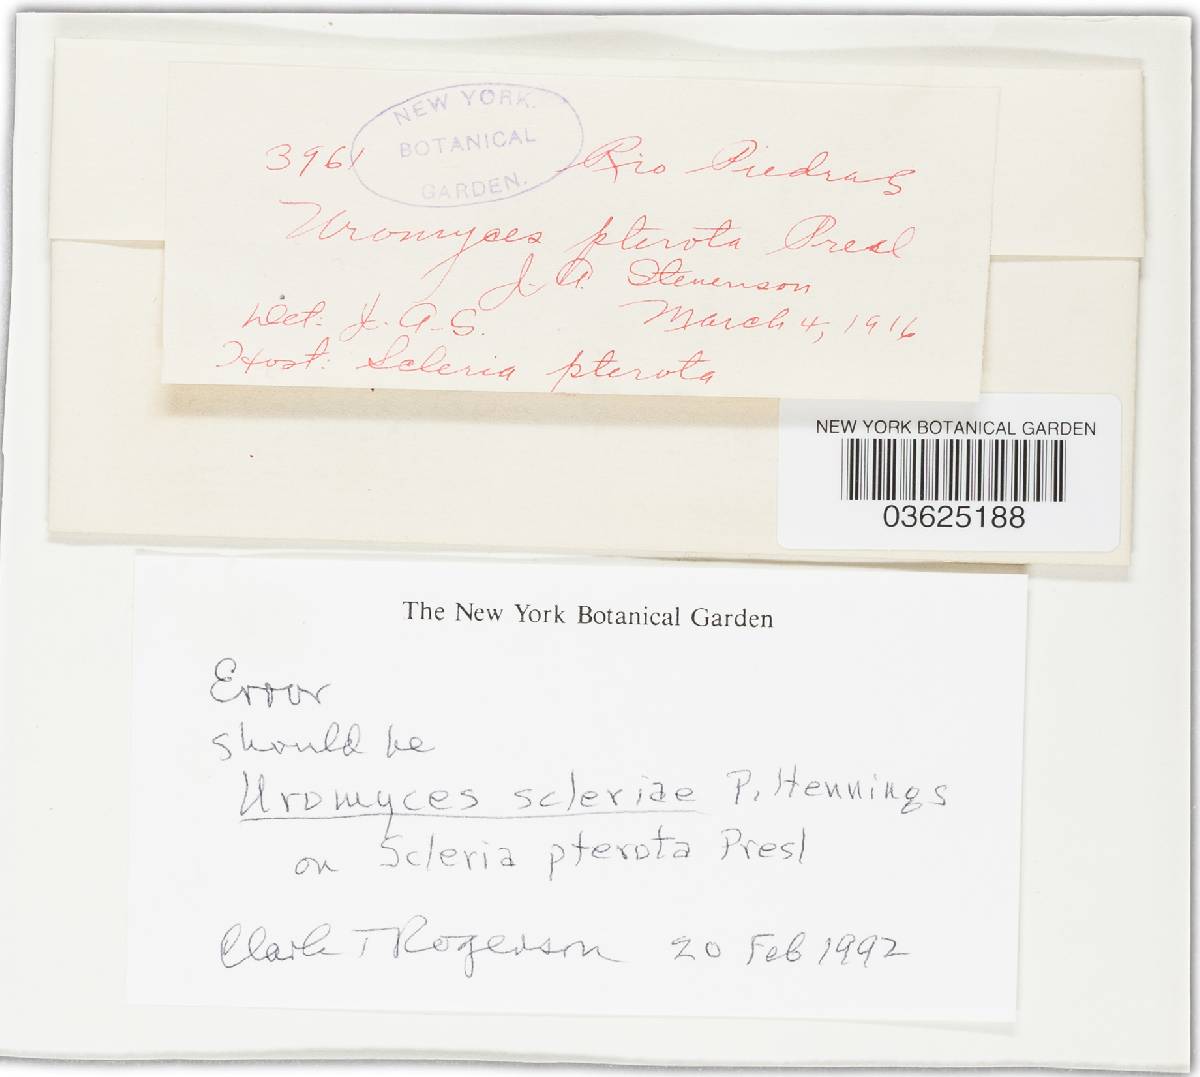 NEW YORK.
BOTANICAL
GARDEN.
3961 Rio Piedras
Uromyces pterota Presl
J. A. Stevenson
Det. J. A. S. March 4, 1916
Host: Scleria pterota
NEW YORK BOTANICAL GARDEN
03625188
The New York Botanical Garden
Error
should be
Uromyces scleriae P. Hennings
on Scleria pterota Presl
Clark T Rogerson 20 Feb 1992